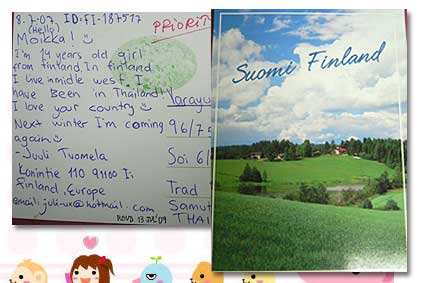 8.7.07, ID=FI-187517
PRIORIT
(Hello)
Moikka!
I'm 14 years old girl
from finland. In finland
I live in midle west. I
have Been in Thailand!
I love your country
Next winter I'm coming
again
-Juuli Tuomela
110 91100 Ii
Finland, Europe
email: juli-ux@hotmail.com
96/75
Soi 6/
Trad
Samut
THAI
RCVD 13 JUL'09
Suomi Finland